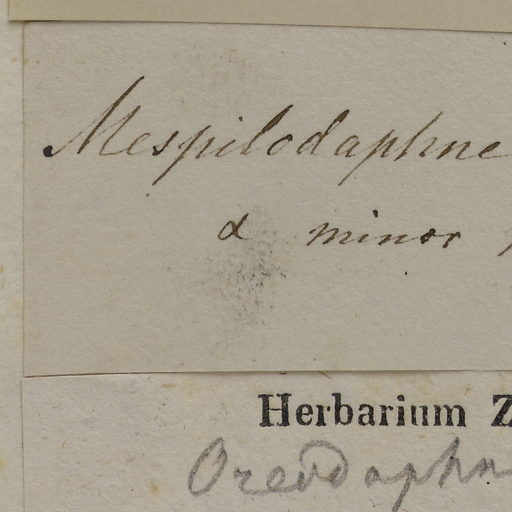 Mespilodaphne
α minor
Herbarium Z
Oreodaphn